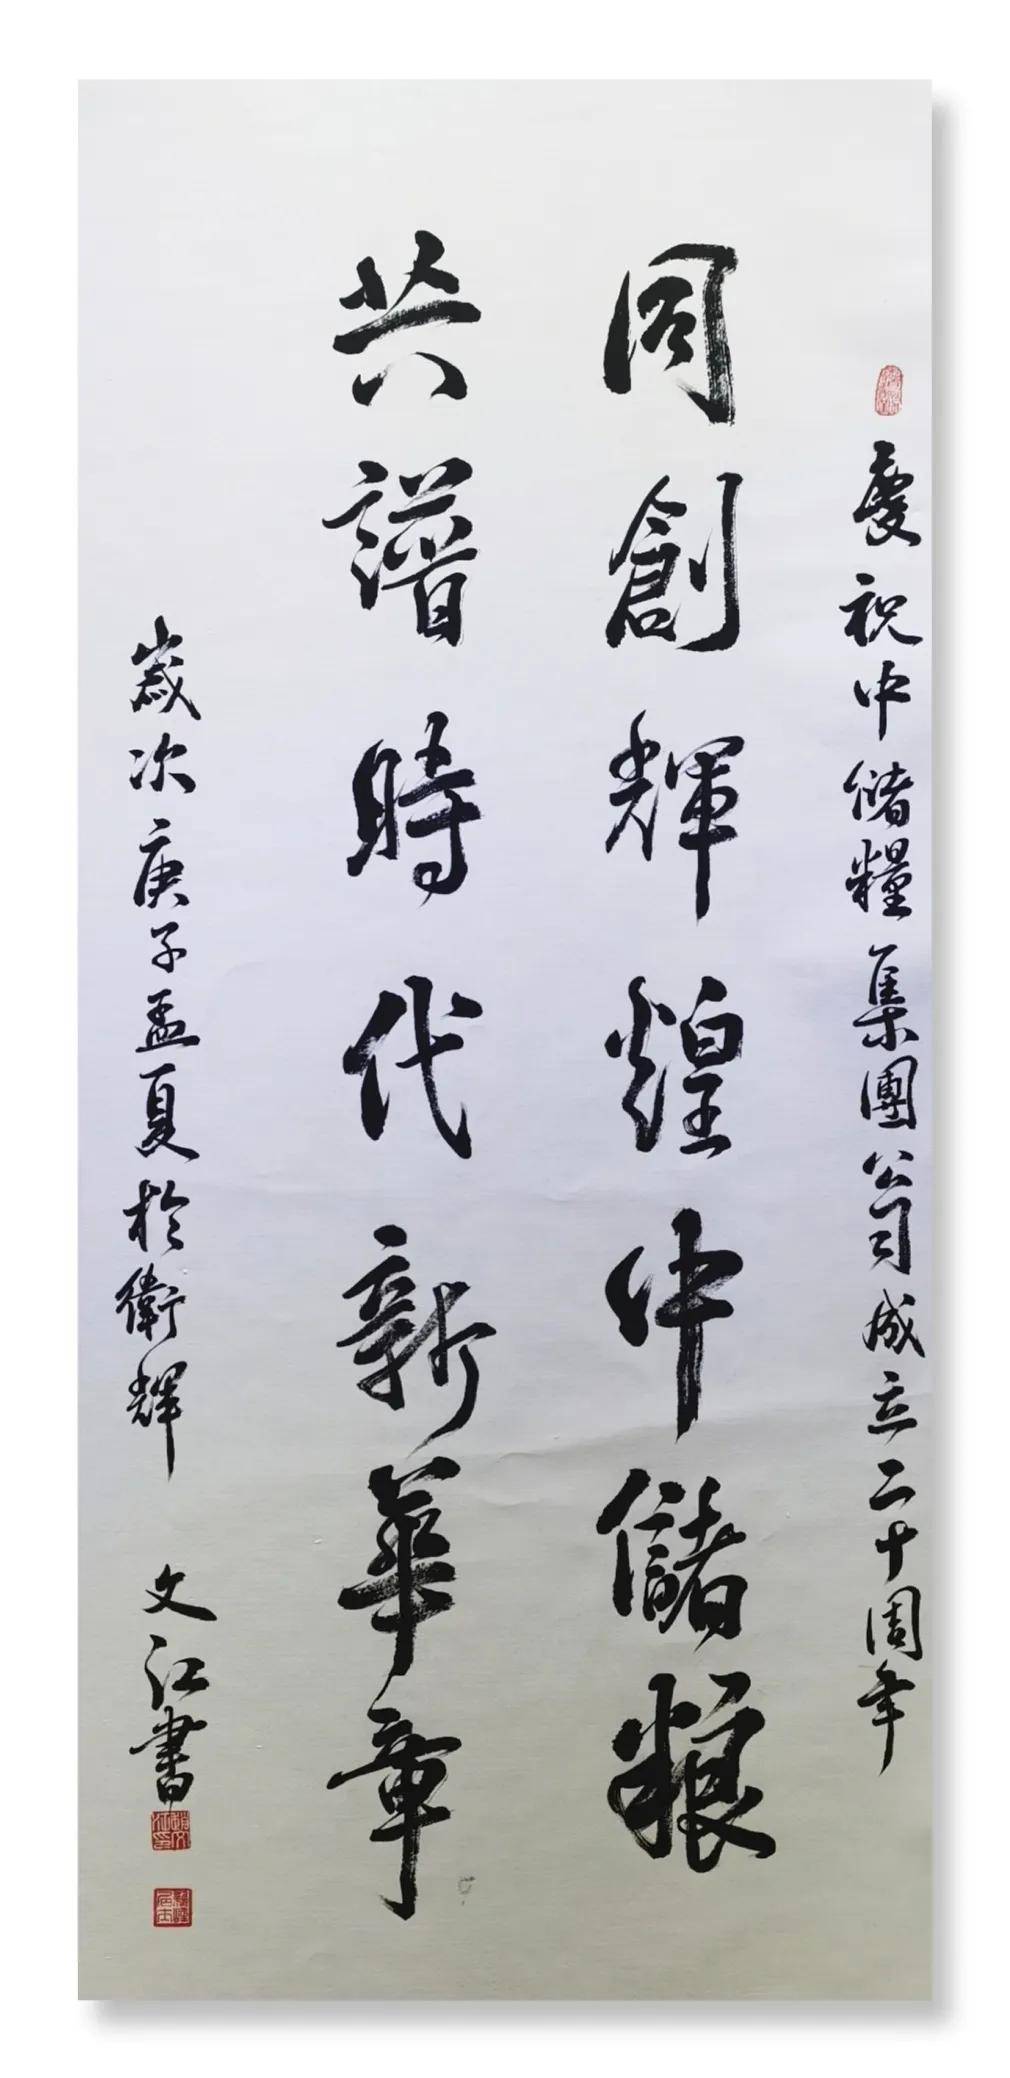 慶祝中儲糧集團公司成立二十周年
同創輝煌中儲粮
共譜時代新華章
歲次庚子孟夏於衛輝
文江書